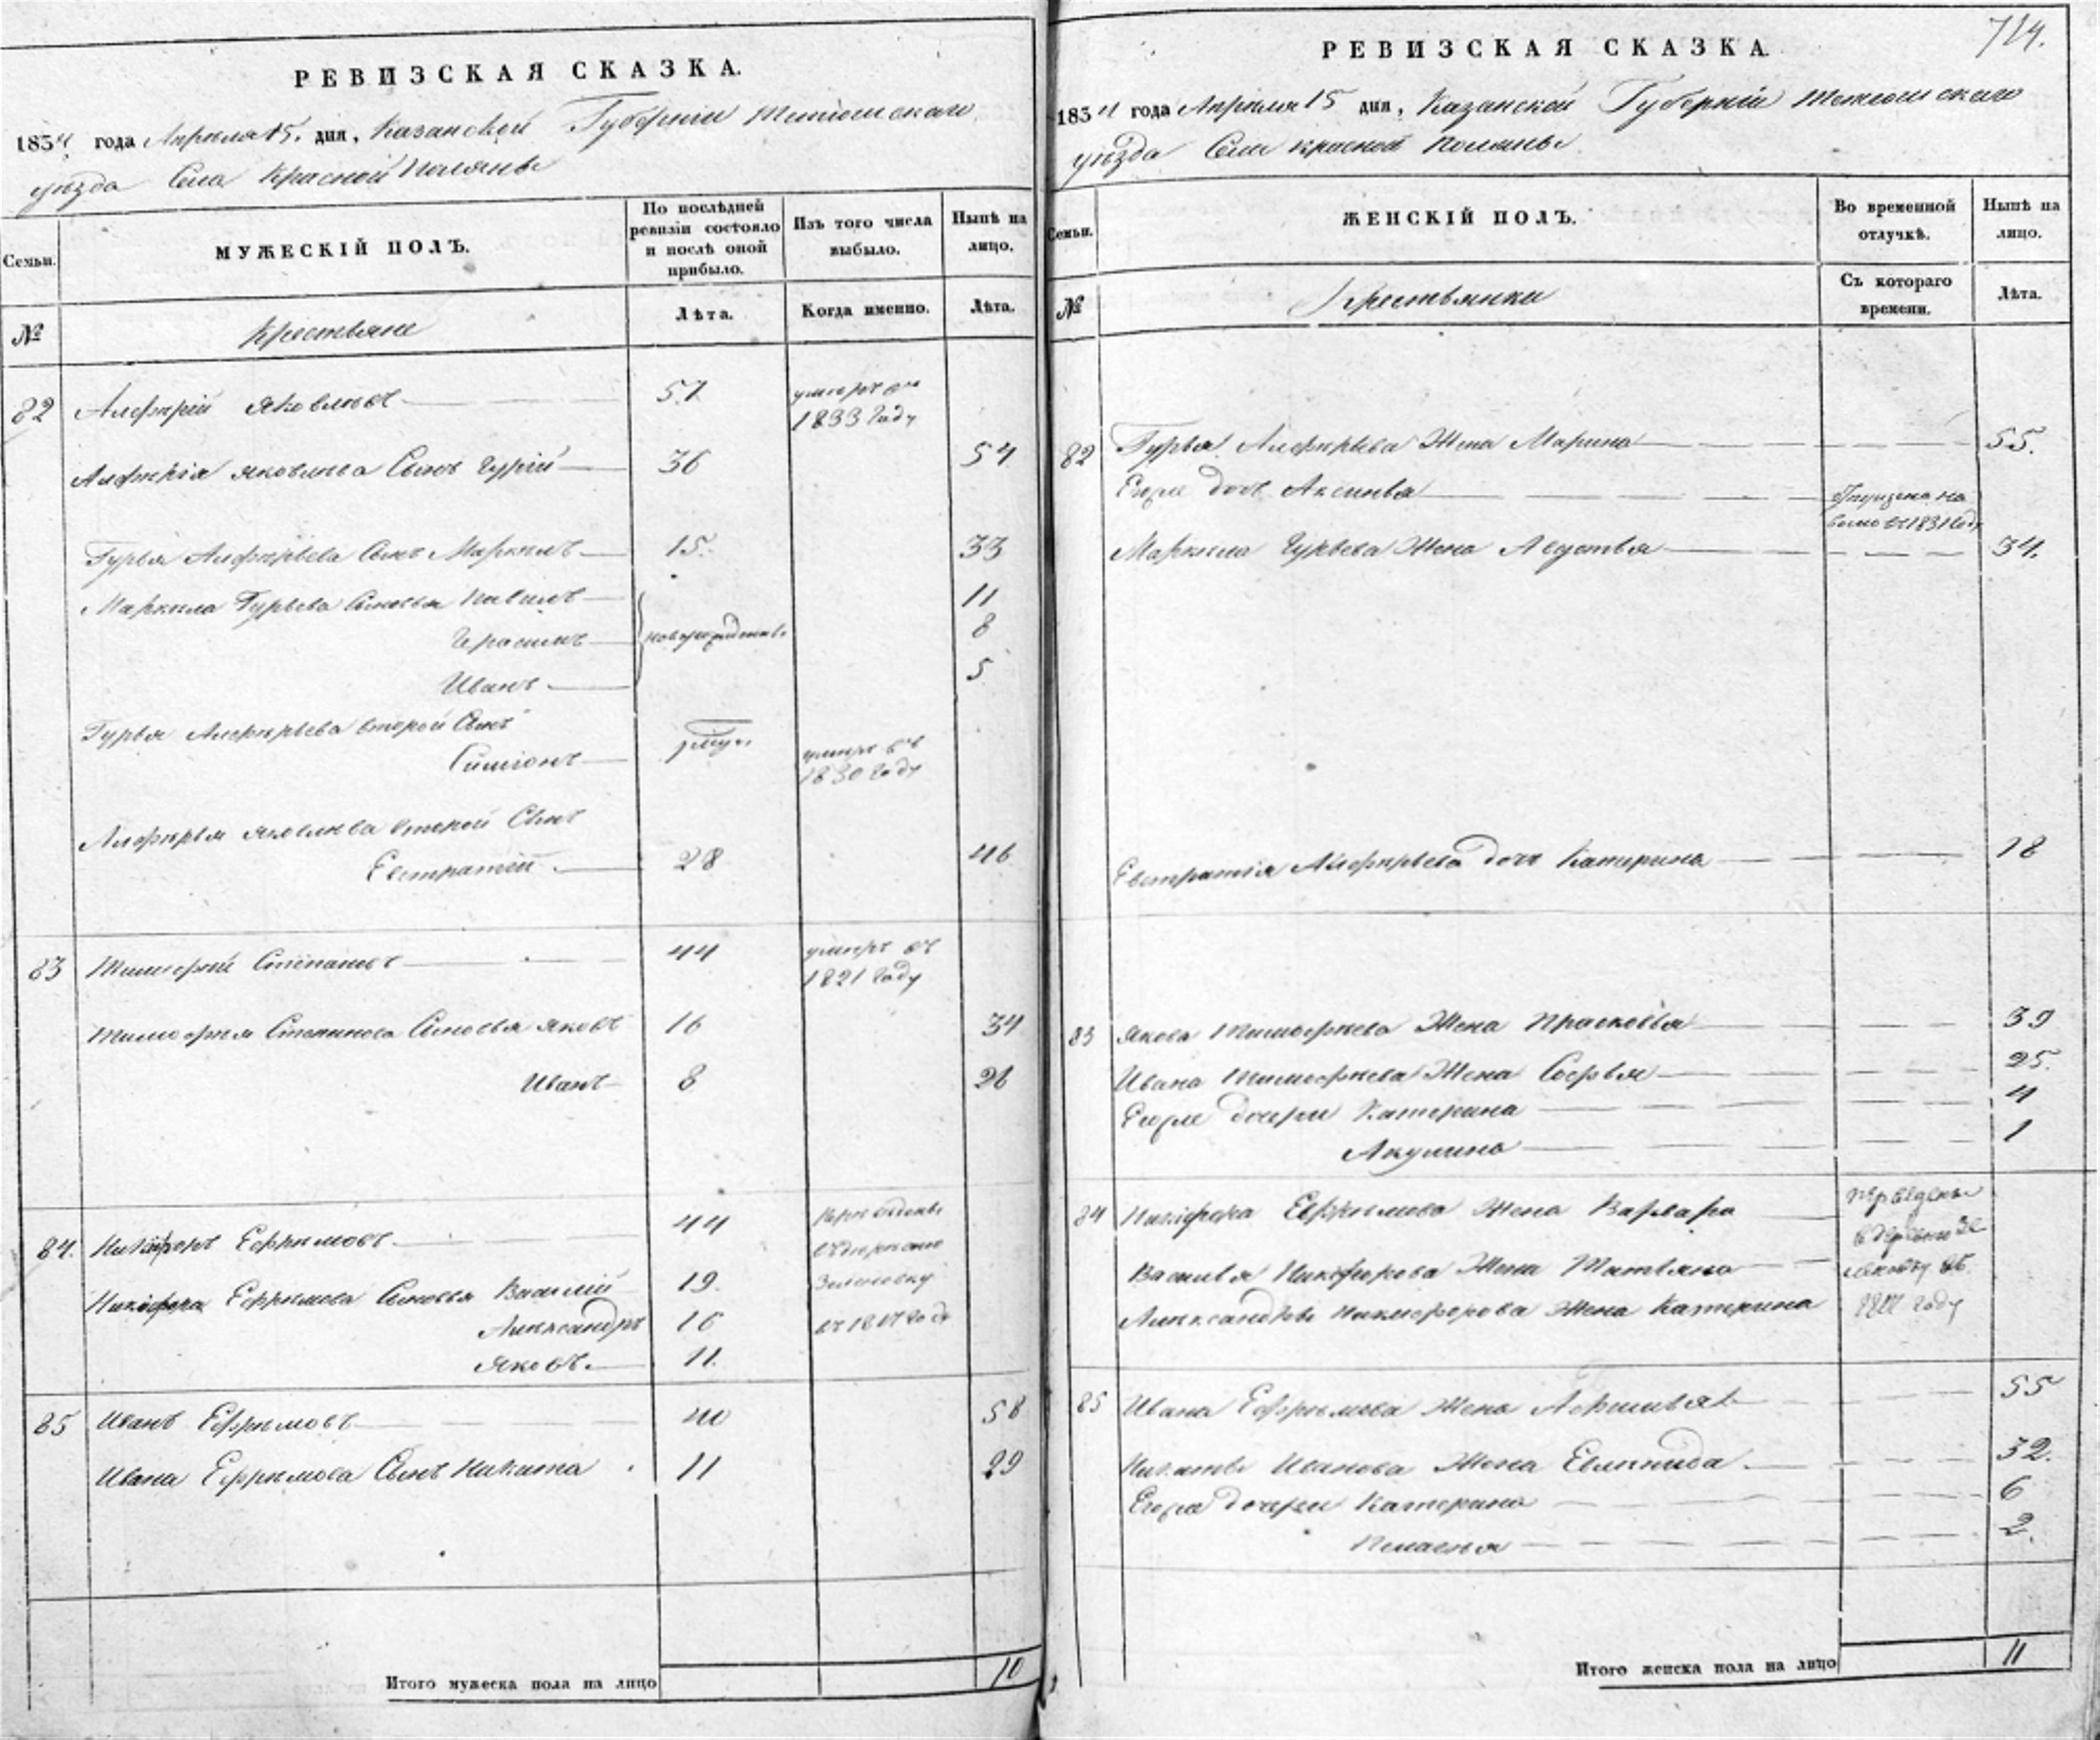 РЕВИЗСКАЯ СКАЗКА.
1834 года Апреля 15. дня, Казанской Губернии Тетюшскаго
уезда Села Красной Поляны
Семьи.
МУЖЕСКІЙ ПОЛЪ.
По послѣдней ревизіи состояло и послѣ оной прибыло.
Изъ того числа выбыло.
Нынѣ на лицо.
№
Крестьяне
Лѣта.
Когда именно.
Лѣта.
82 Алферій Яковлевъ 57 умеръ въ
1833 году
Алферія Яковлева Сынъ Гурій 36 54
Гурья Алферьева Сынъ Маркелъ 15. 33
Маркела Гурьева Сыновья Павелъ 11
Герасимъ новорожденные 8
Иванъ 5
Гурья Алферьева второй Сынъ
Симіонъ умеръ въ
1830 году
Алферья Яковлева второй Сынъ
Евстратій 28 46
83 Тимофей Степановъ 44 умеръ въ
1821 году
Тимофея Степанова Сыновья Яковъ 16 34
Иванъ 8 26
84. Никифоръ Ефремовъ 44
Никифора Ефремова Сыновья Василій 19.
Александръ 16
Яковъ 11.
85 Иванъ Ефремовъ 40 58
Ивана Ефремова Сынъ Никита 11 29
Итого мужеска пола на лицо 10
714.
РЕВИЗСКАЯ СКАЗКА.
1834 года Апреля 15 дня, Казанской Губерніи Тетюшскаго
уезда Села Красной Поляны
Семьи.
ЖЕНСКІЙ ПОЛЪ.
Во временной отлучкѣ.
Нынѣ на лицо.
№
Крестьянки
Съ котораго времени.
Лѣта.
82 Гурья Алферьева Жена Марина 55.
Его дочь Аксинья отпущена на
волю въ 1831 году
Маркела Гурьева Жена Авдотья 34.
Евстратія Алферьева дочь Катерина 18
83 Якова Тимофеева Жена Прасковья 39
Ивана Тимофеева Жена Софья 25.
Его дочери Катерина 4
Акулина 1
84 Никифора Ефремова Жена Варвара
Василья Никифорова Жена Татьяна
Александра Никифорова Жена Катерина
85 Ивана Ефремова Жена 55
Никиты Иванова Жена Евлампида 32.
Его дочери Катерина 6
Пелагея 2.
Итого женска пола на лицо 11